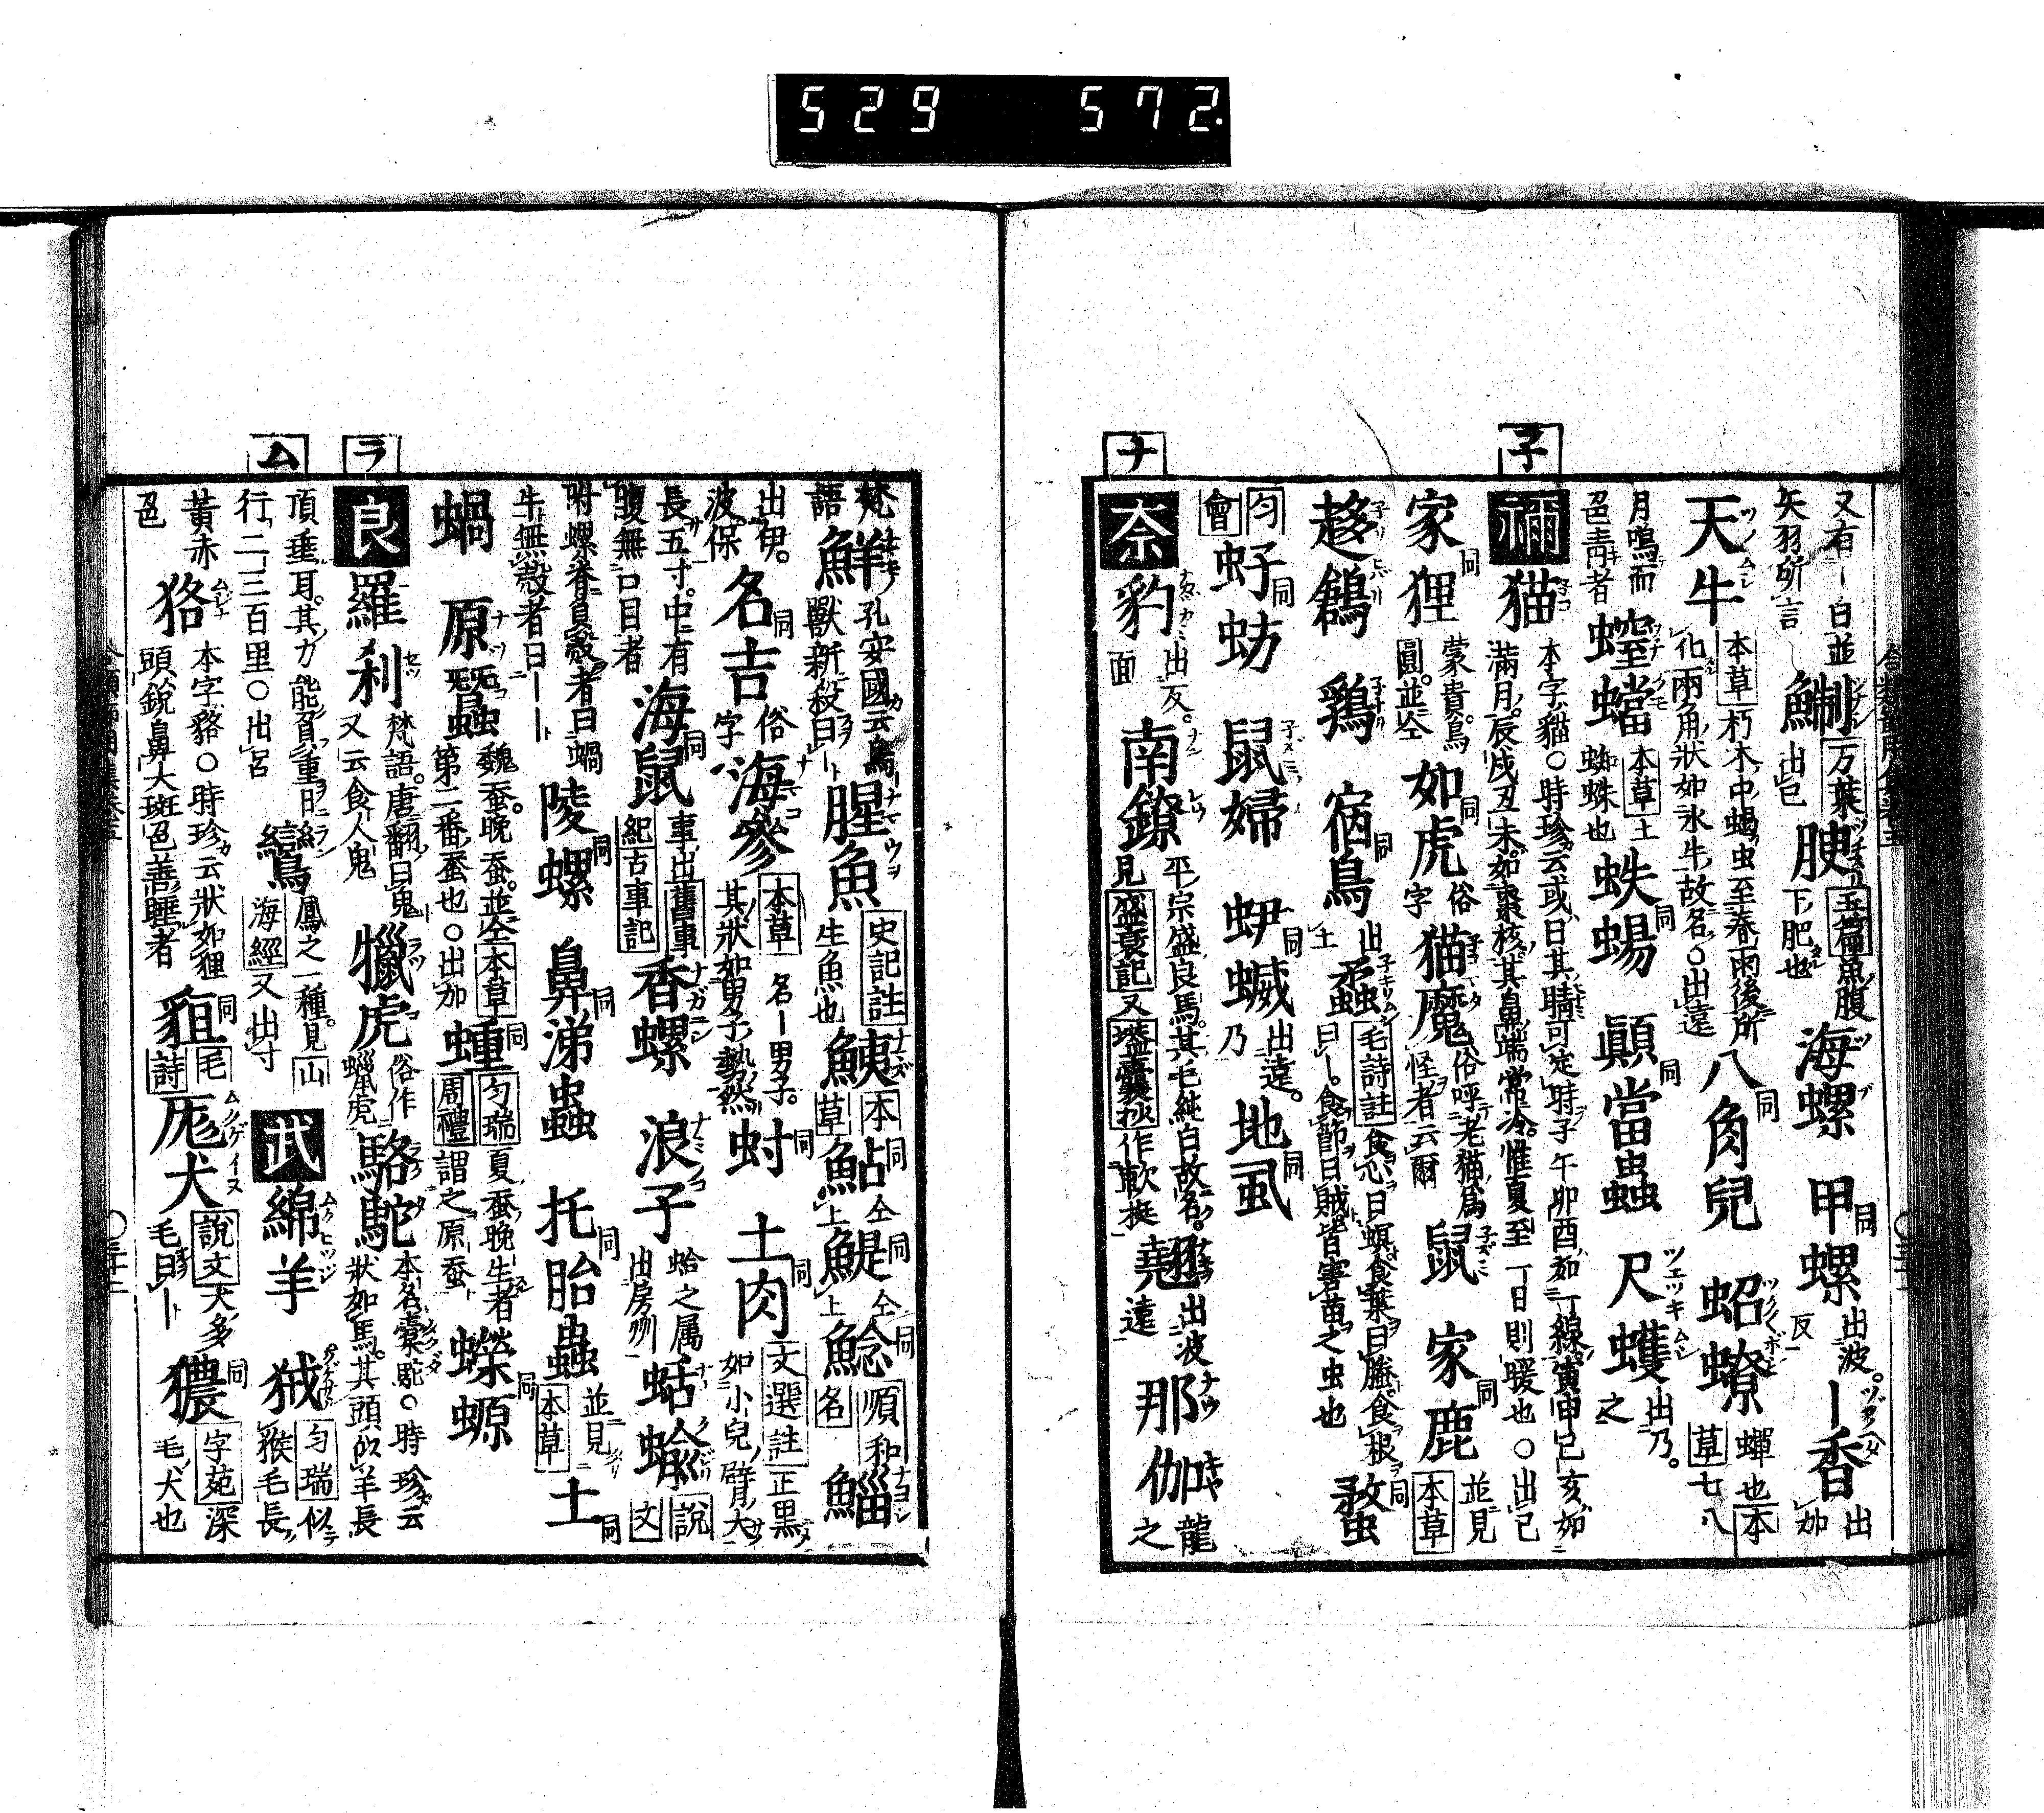 529 572.
子
ナ
又有ー白並矢羽所言 鯯 万葉 出巳 腴 玉篇 魚腹下肥也 海螺 甲螺 同 出波反 ー香 出加
天牛 本草 朽木中蝎虫至春雨後所化兩角狀如水牛故名○出遠 八角兒 同 蛁蟟 蟬也 本草 七八
月鳴而色青者 螲蟷 本草 土蜘蛛也 蛈蜴 同 顚當蟲 同 尺蠖 出乃之
禰 猫 本字貓○時珍云或曰其睛可定時子午卯酉如一線寅申巳亥如滿月辰戌丑未如棗核其鼻端常冷惟夏至一日則暖也○出巳
家狸 同 蒙貴烏圓並仝 如虎 同 俗字 猫魔 俗呼老猫爲怪者云爾 鼠 家鹿 同 並見 本草
趍鶬 鷄 宿鳥 同 出土 蟊 毛詩註 食心曰螟食葉曰螣食根曰ー食節曰賊皆害苗之虫也 蝥 同
匀會 虸蚄 同 鼠婦 蛜蝛 同 出遠乃 地虱 同
奈 豹 出反面 南鐐 平宗盛良馬其毛純白故名見 盛衰記 又 壒囊抄 作軟挺 出波遠 那伽 龍之
ラ
ム
梵語 鮮 孔安國云鳥獸新殺曰ー 腥魚 史記註 生魚也 鮧 本草 鮎 同 仝上 鯷 同 仝上 鯰 同 順和名 鯔
出伊波保 名吉 同 俗字 海參 本草 名ー男子其狀如男子勢然 蚶 同 土肉 同 文選註 正黑如小兒臂大
長五寸中有腹無口目者 海鼠 同 事出 舊事紀 古事記 香螺 浪子 蛤之属出房州 蛞蝓 說文
附螺脊負殼者曰蝸牛無殼者曰ーー 陵螺 同 鼻涕蟲 同 托胎蟲 同 並見 本草 土 同
蝸 原蠶 魏蚕晚蚕並仝 本草 第二番蚕也○出加 蝩 同 匀瑞 夏蚕晚生者 周禮 謂之原蚕 蠑螈 同
良 羅刹 梵語唐翻曰鬼又云食人鬼 獵虎 俗作蠟虎 駱駝 本名橐駝○時珍云狀如馬其頭似羊長
頂垂耳其力能負重日行二三百里○出呂 鸞 鳳之一種見 山海經 又出寸 武 綿羊 狨 匀瑞 似猴毛長
黃赤色 狢 本字貉○時珍云狀如狸頭銳鼻大斑色善睡者 貆 同 毛詩 尨犬 說文 犬多毛曰ー 獽 同 字苑 深毛犬也